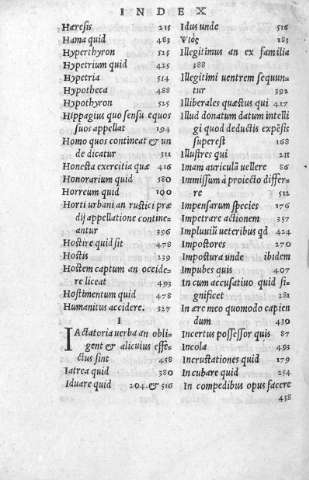 INDEX
Hæresis 215
Hama quid 283
Hyperthyron 525
Hypetrium quid 425
Hypetria 514
Hypotheca 488
Hypothyron 525
Hippagius quo sensu equos
suos appellat 194
Homo quos contineat & un
de dicatur 511
Honesta exercitia quæ 416
Honorarium quid 580
Horreum quid 190
Horti urbani an rustici præ
dij appellatione contine=
antur 396
Hostire quid sit 478
Hostis 139
Hostem captum an occide=
re liceat 493
Hostimentum quid 478
Humanitus accidere. 527
I
IActatoria uerba an obli=
gent & alicuius effe=
ctus sint 458
Iatrea quid 380
Iduare quid 204.& 516
Idus unde 516
283
Illegitimus an ex familia
288
Illegitimi uentrem sequun=
tur 392
Illiberales quæstus qui 417
Illud donatum datum intelli
gi quod deductis expẽsis
superest 168
Illustres qui 211
Imam auriculã uellere 86
Immissum à proiecto differ=
re 512
Impensarum species 176
Impetrare actionem 357
Impluuiũ ueteribus qd 424
Impostores 270
Impostura unde ibidem
Impubes quis 407
In cum accusatiuo quid si=
gnificet 281
In ære meo quomodo capien
dum 430
Incertus possessor quis 87
Incola 493
Incrustationes quid 179
Incubare quid 254
In compedibus opus facere
438